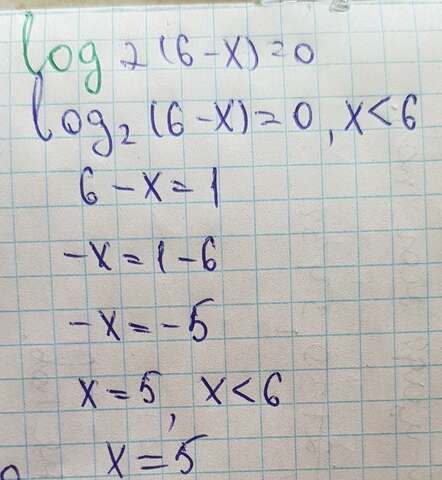 log 2(6-x)=0
log₂(6-x)=0, x<6
6-x=1
-x=1-6
-x=-5
x=5, x<6
x=5